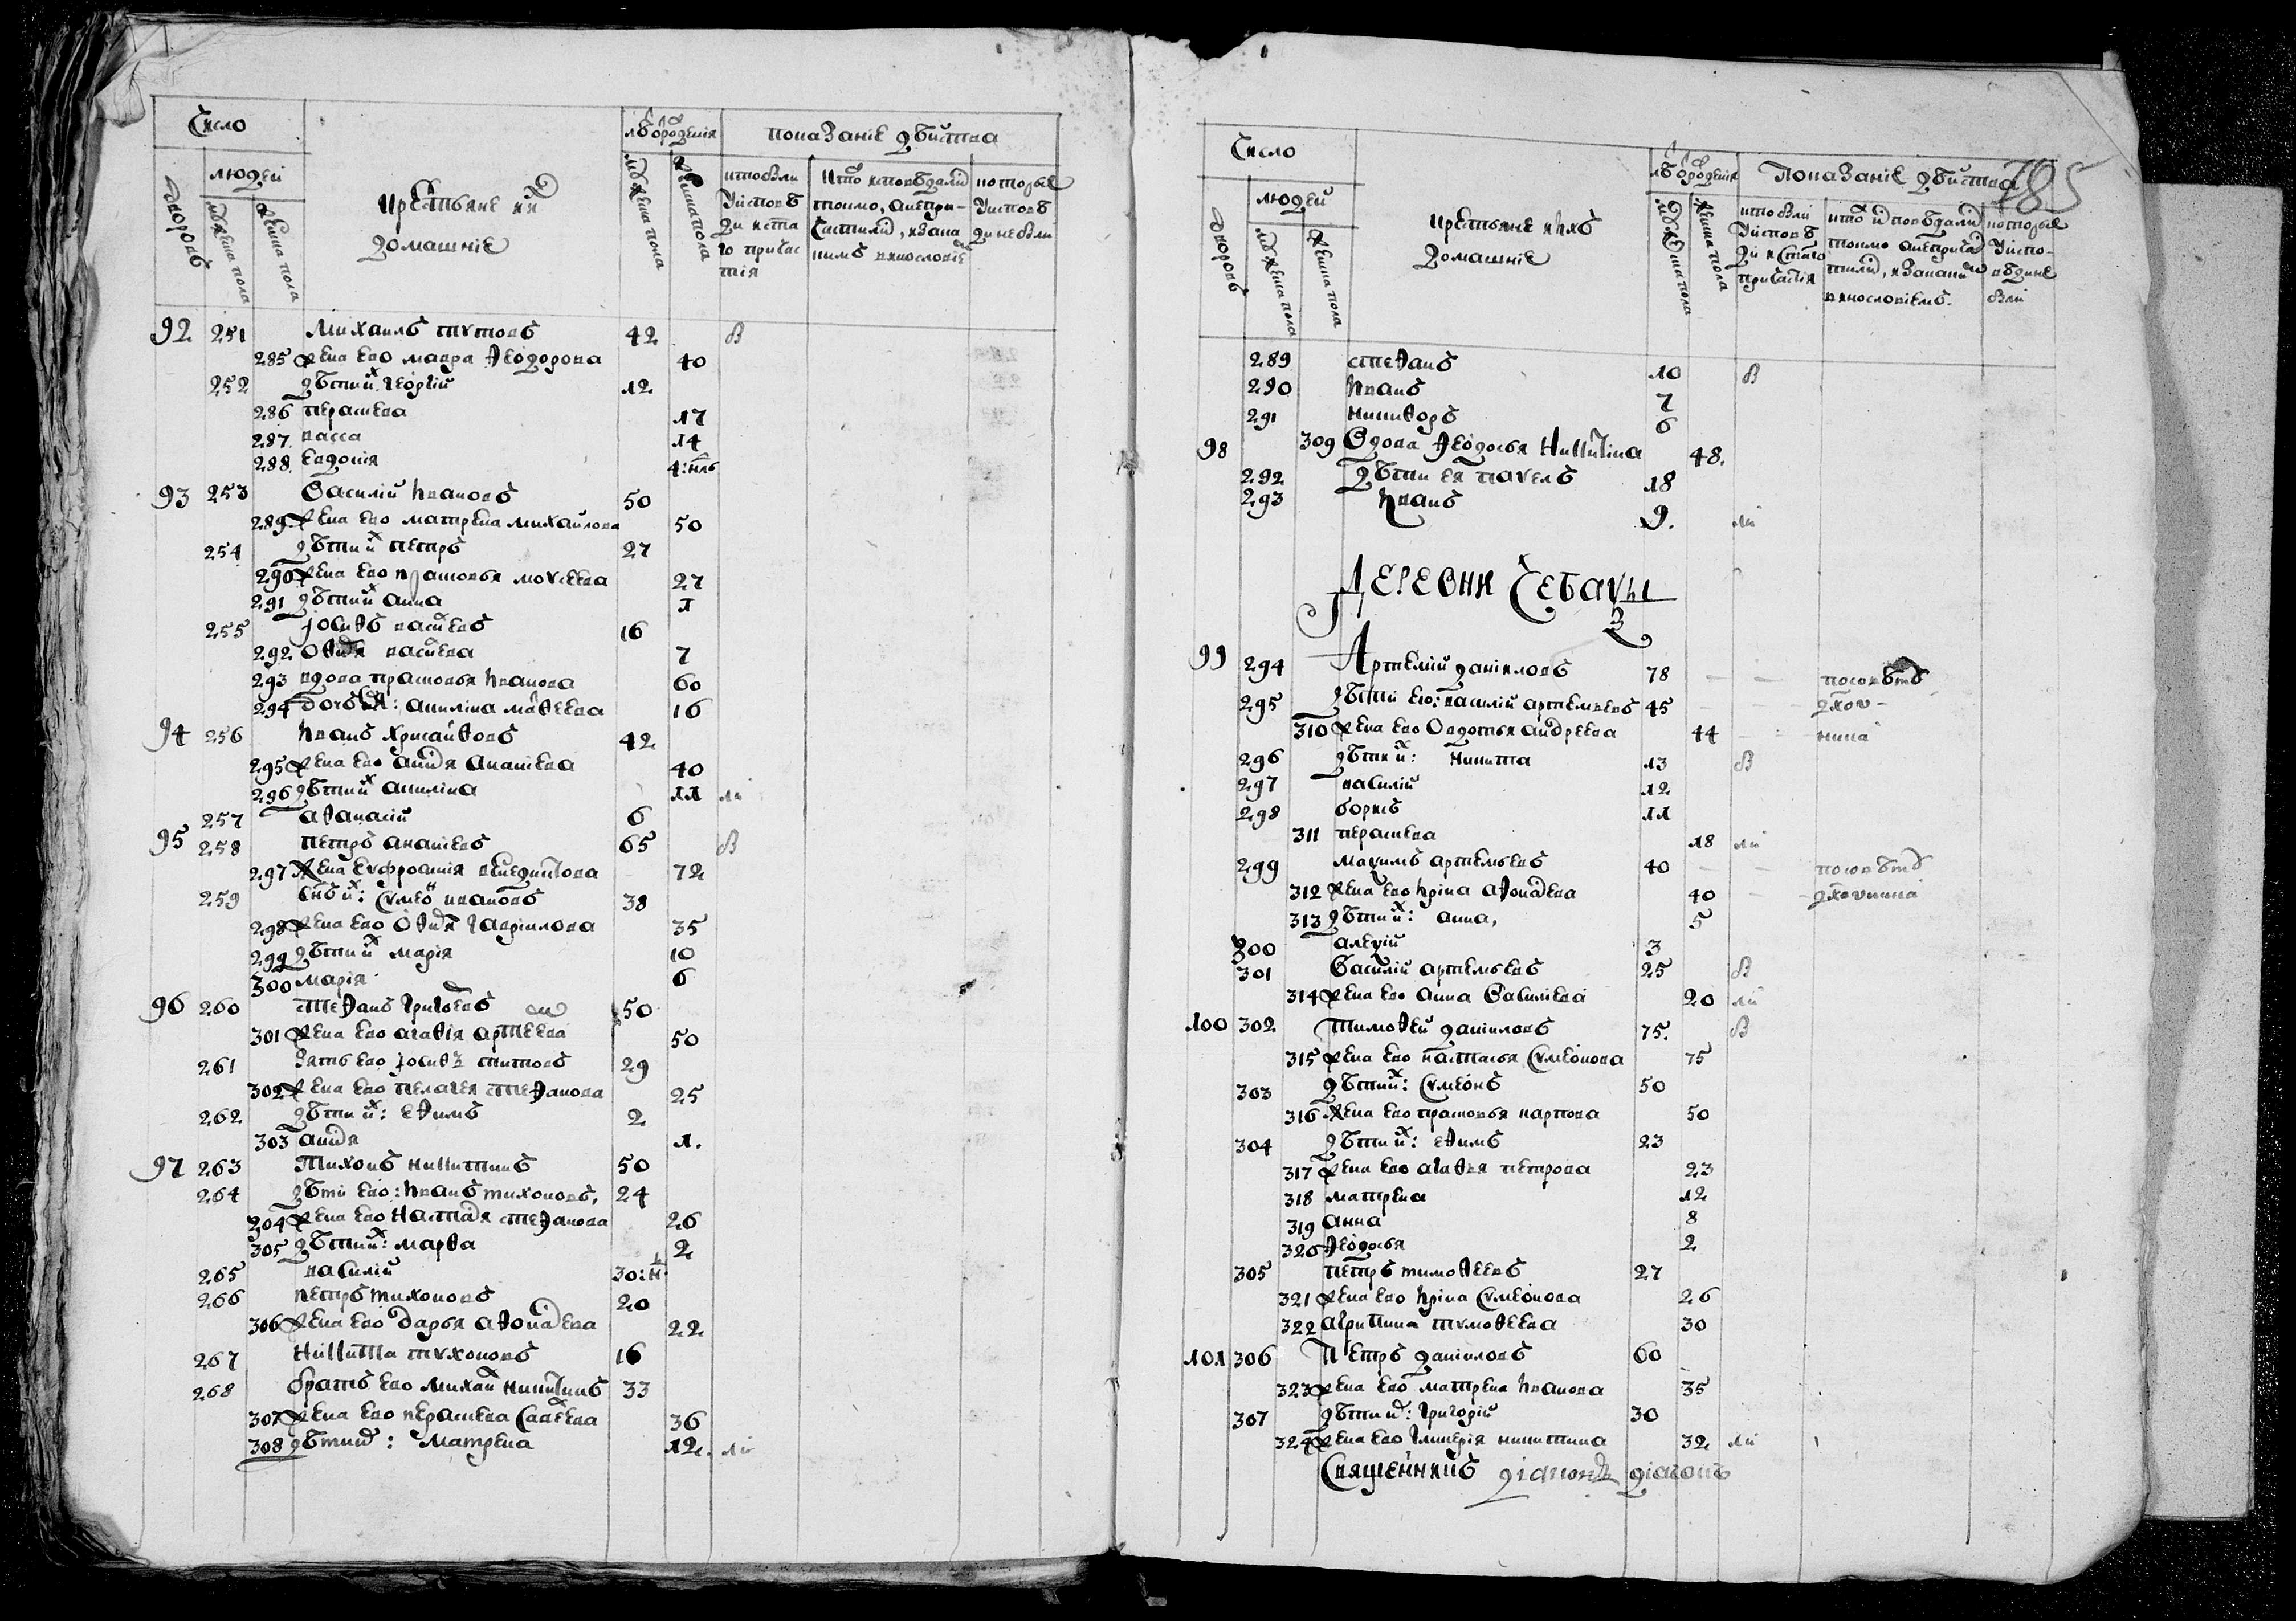 Число
лѣ ѿ рожденiя
показанiе дѣйства
дворовъ
людей
мужеска пола
женска пола
крестьяне и их
домашнiе
мужеска пола
женска пола
кто были
у исповѣ
ди и ста
го причас
тiя
кто исповѣдали
токмо, а не при-
частили, и за ка
кимъ винословіе
которые
у исповѣ
ди не были
92 251 Михаилъ титовъ 42 в
285 жена ево мавра Ѳеодорова 40
252 дѣти их георгiй 12
286 параскева 17
287 васса 14
288 евдокiя 4
93 253 Василiй Ивановъ 50
289 жена ево матрена михайлова 50
254 дѣти их петръ 27
290 жена ево прасковья моѵсеева 27
291 дѣти их анна 1
255 Iосиѳъ васиевъ 16
292 васиева 7
293 вдова прасковья Иванова 60
294 дочь ея: акилина матѳеева 16
94 256 Иванъ хрисанѳовъ 42
295 жена ево ананiева 40
296 дѣти их акилина 11
257 аѳанасiй 6
95 258 петръ ананiевъ 65 в
297 жена евфросинiя 72
259 снъ их: Сѵмео ивановъ 38
298 жена ево гаврiилова 35
299 дѣти их марiя 10
300 марiя 6
96 260 стеѳанъ григоевъ 50
301 жена ево агаѳiя артеева 50
261 зять ево Iосиѳъ титовъ 29
302 жена ево пелагея стеѳанова 25
262 дѣти их: еѳимъ 2
303 1.
97 263 Тихонъ никитинъ 50
264 дѣти ево: Иванъ тихоновъ, 24
304 жена ево настася стеѳанова 26
305 дѣти их: марѳа 2
265 василiй 30
266 петръ тихоновъ 20
306 жена ево дарья 22
267 никита тихоновъ 16
268 братъ ево михаи никитинъ 33
307 жена ево параскева 36
308 дѣти их: матрена 12.
785
Число
лѣ ѿ рожденiя
Показанiе дѣйства
дворовъ
людей
мужеска пола
женска пола
крестьяне и ихъ
домашнiе
мужеска пола
женска пола
кто были
у исповѣ
ди и стаго
причастiя
кто исповѣдали
токмо а не прича
стили, и за каким
винословiемъ.
которые
у испо-
вѣди не
были
289 стеѳанъ 10 в
290 Иванъ 7
291 никифоръ 6
98 309 Вдова Ѳеодосья Никитина 48.
292 дѣти ея павелъ 18
293 Иванъ 9.
ДЕРЕВНИ Чебаѯы
99 294 Артемiй данiиловъ 78
295 дѣти ево: василiй артемьевъ 45
310 жена ево Овдотья андреева 44
296 дѣти их: никита 13 в
297 василiй 12
298 борисъ 11
311 параскева 18
299 маѯимъ артемьевъ 40
312 жена ево Ирина 40
313 дѣти их: анна, 5
300 алеѯiй 3
301 Василiй артемьевъ 25 в
314 жена ево анна Василiева 20
100 302 Тимоѳей данiиловъ 75. в
315 жена ево наталья Сѵмеонова 75
303 дѣти их: Сѵмеонъ 50
316 жена ево прасковья карпова 50
304 дѣти их: еѳимъ 23
317 жена ево агаѳья петрова 23
318 матрена 12
319 анна 8
320 Ѳеодосья 2
305 петръ тимоѳеевъ 27
321 жена ево Ирина Сѵмеонова 26
322 агрипина тимоѳеева 30
101 306 Петръ данiиловъ 60
323 жена ево матрена Иванова 35
307 дѣти их: григорiй 30
324 жена ево гликерiя никитина 32
Священникъ